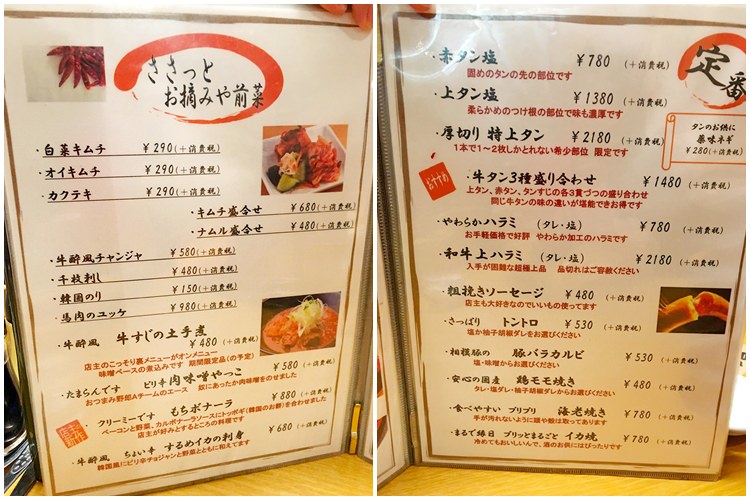 ささっと
お摘みや前菜
・白菜キムチ ¥290(+消費税)
・オイキムチ ¥290(+消費税)
・カクテキ ¥290(+消費税)
・キムチ盛合せ ¥680(+消費税)
・ナムル盛合せ ¥480(+消費税)
・牛酔風チャンジャ ¥580(+消費税)
・千枚刺し ¥480(+消費税)
・韓国のり ¥150(+消費税)
・馬肉のユッケ ¥980(+消費税)
・牛酔風 牛すじの土手煮
¥480(+消費税)
店主のこっそり裏メニューがオンメニュー
味噌ベースの煮込みです 期間限定品(の予定)
・たまらんです ピリ辛肉味噌やっこ ¥580(+消費税)
おつまみ野郎Aチームのエース 奴にあったか肉味噌をのせました
・クリーミーです もちボナーラ ¥880(+消費税)
ベーコンと野菜、カルボナーラソースにトッポギ(韓国のお餅)を合わせました
店主が好みとするところの料理です
・牛酔風 ちょい辛 するめイカの刺身 ¥680(+消費税)
韓国風にピリ辛チョジャンと野菜とともに和えてます
定番
・赤タン塩 ¥780(+消費税)
固めのタンの先の部位です
・上タン塩 ¥1380(+消費税)
柔らかめのつけ根の部位で味も濃厚です
・厚切り 特上タン ¥2180(+消費税)
1本で1〜2枚しかとれない希少部位 限定です
タンのお供に
薬味ネギ
¥280(+消費税)
おすすめ
・牛タン3種盛り合わせ ¥1480(+消費税)
上タン、赤タン、タンすじの盛り合わせ各3貫づつの盛り合わせ
同じ牛タンの味の違いが堪能できお得です
・やわらかハラミ (タレ・塩) ¥780(+消費税)
お手軽価格で好評 やわらか加工のハラミです
・和牛上ハラミ (タレ・塩) ¥2180(+消費税)
入手が困難な超極上品 品切れはご容赦ください
・粗挽きソーセージ ¥480(+消費税)
店主も大好きなのでいいもの使ってます
・さっぱり トントロ ¥530(+消費税)
塩か柚子胡椒ダレをお選びください
・相模豚の 豚バラカルビ ¥530(+消費税)
塩・味噌からお選びください
・安心の国産 鶏モモ焼き ¥480(+消費税)
タレ・塩ダレ・柚子胡椒ダレからお選びください
・食べやすい プリプリ 海老焼き ¥780(+消費税)
手が汚れないように頭や殻は取ってあります
・まるで縁日 プリッとまるごと イカ焼 ¥780(+消費税)
冷めてもおいしいんで、酒のお供にはぴったりです